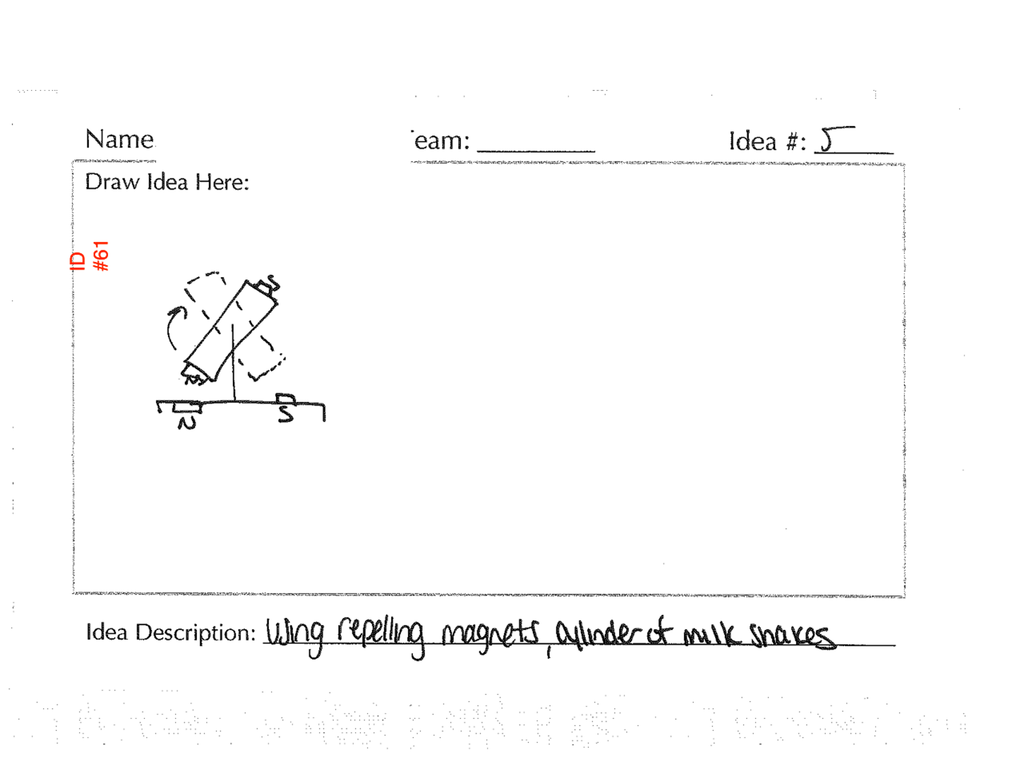 Name eam: Idea #: 5
Draw Idea Here:
ID
#61
S
N
N
S
Idea Description: Using repelling magnets, cylinder of milk shakes